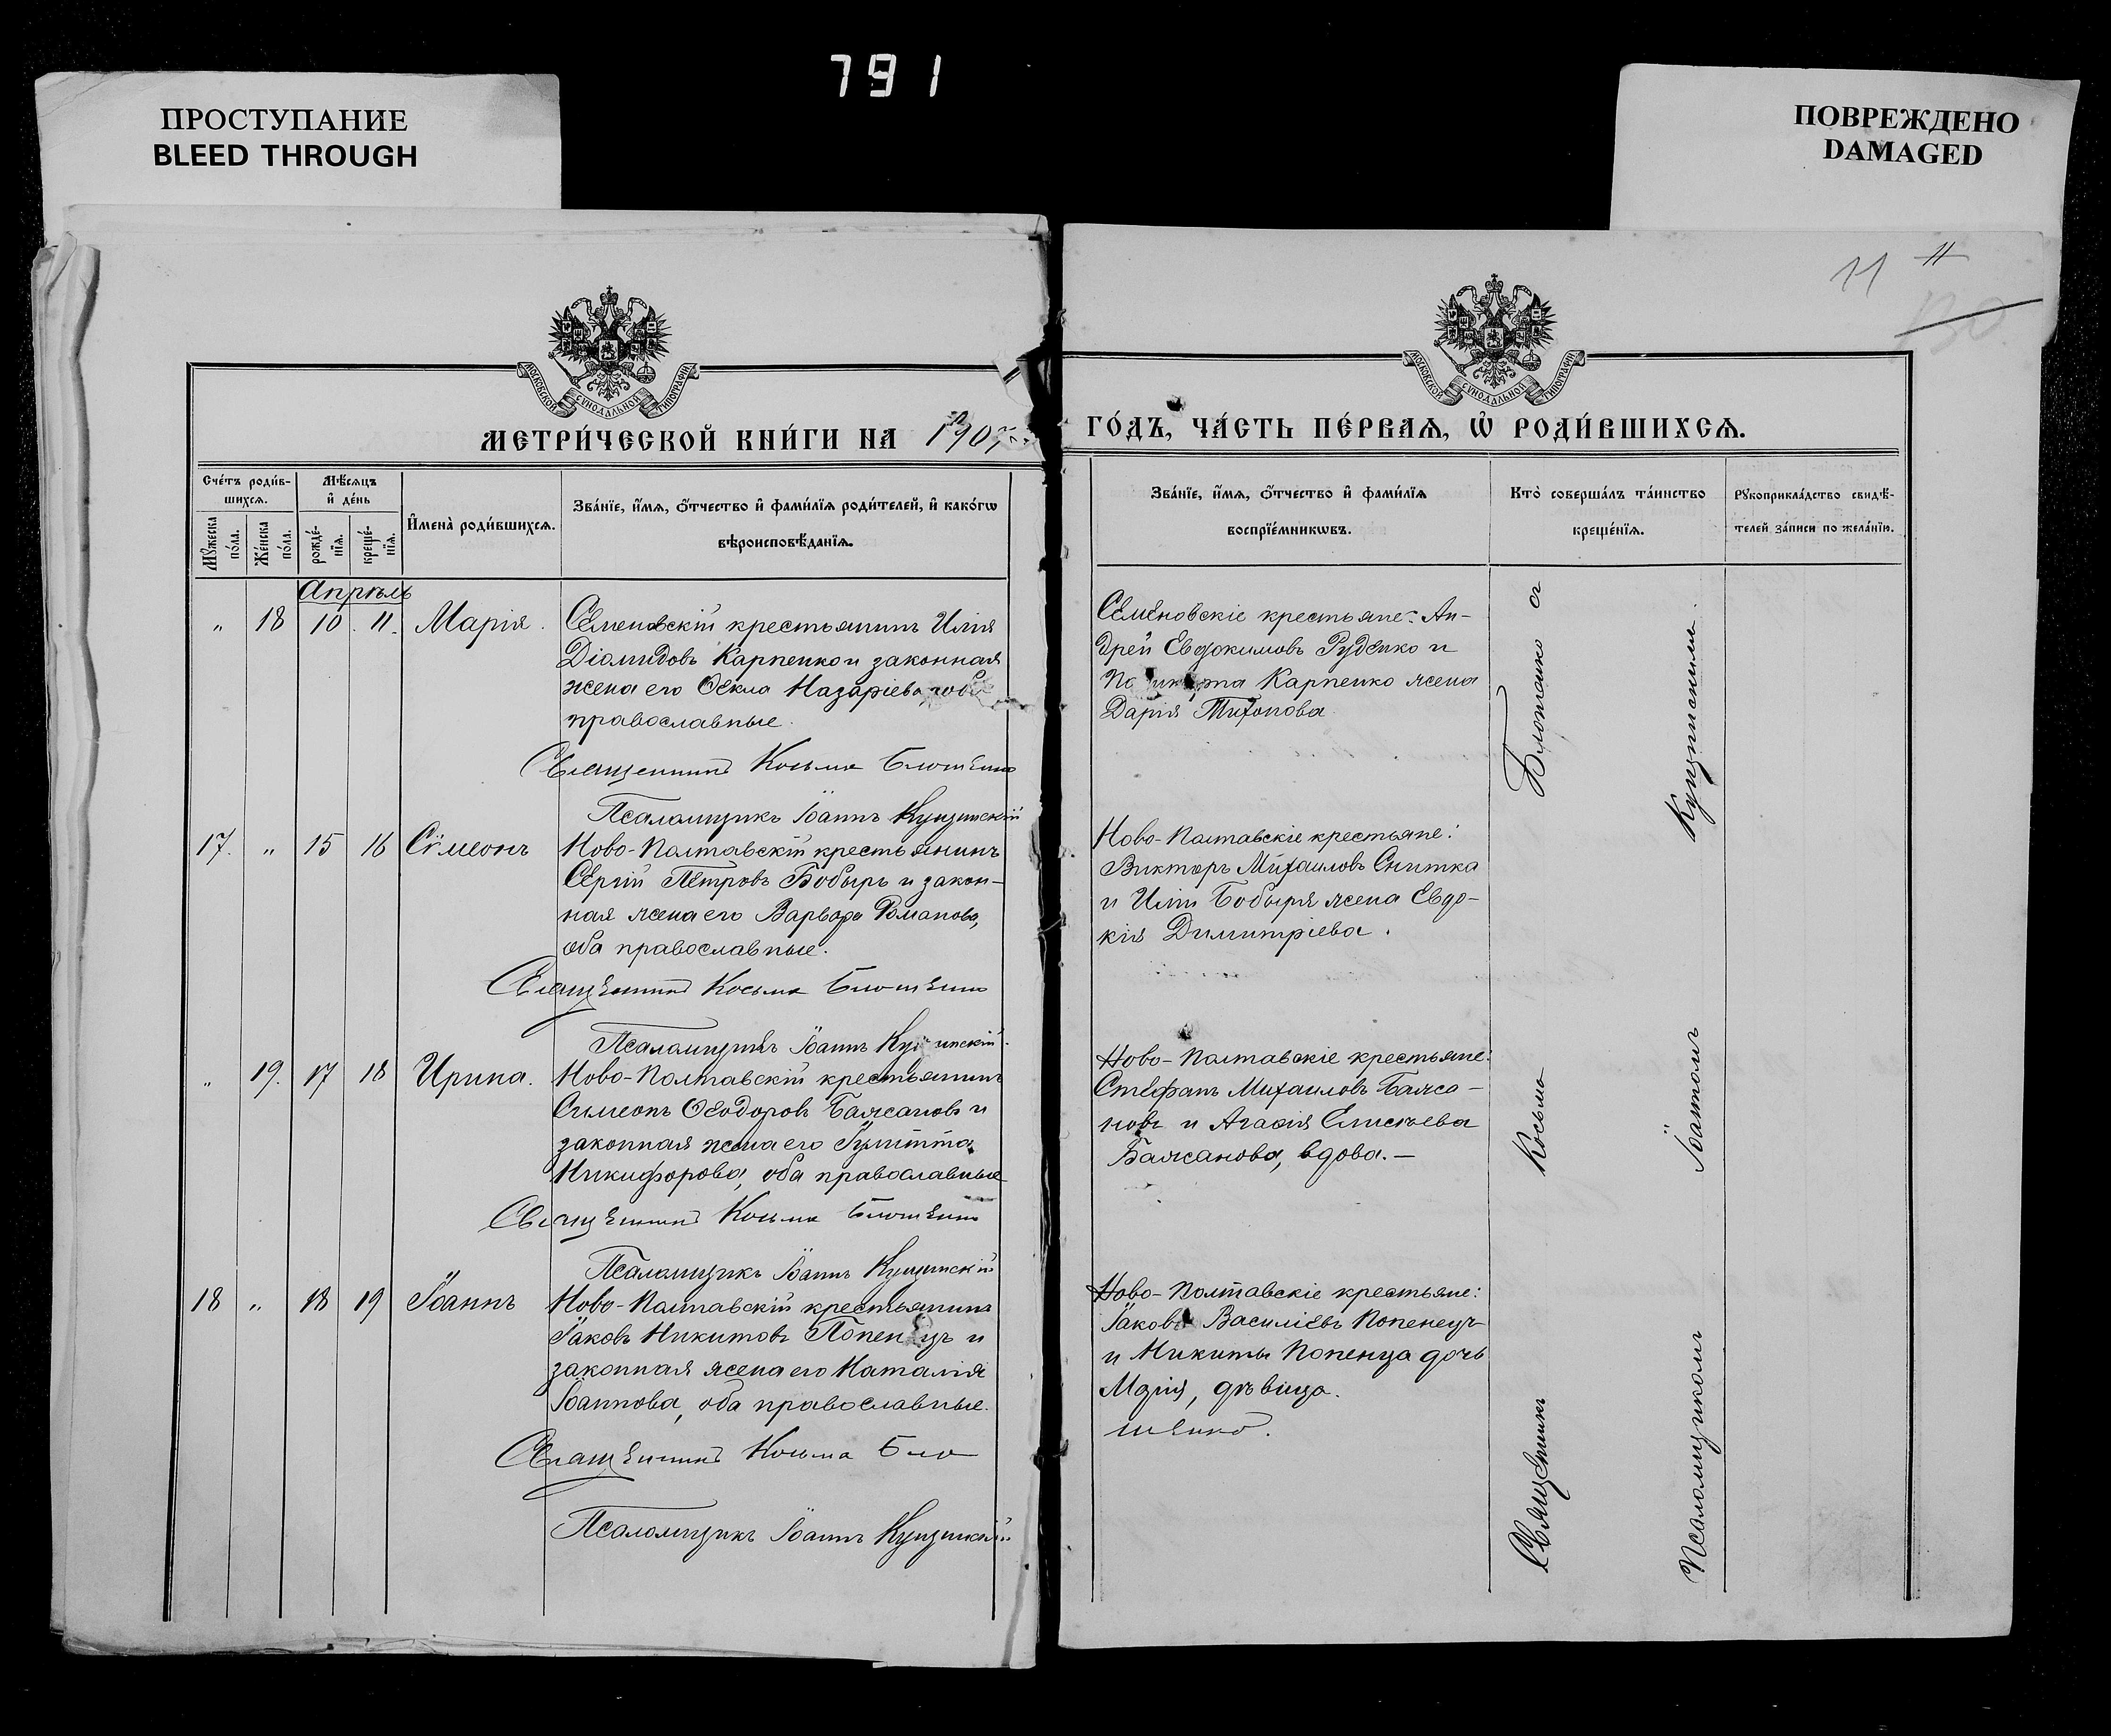 791
ПРОСТУПАНИЕ
BLEED THROUGH
ПОВРЕЖДЕНО
DAMAGED
11 11
МОСКОВСКОЙ СѴНОДАЛЬНОЙ ТИПОГРАФІИ
МОСКОВСКОЙ СѴНОДАЛЬНОЙ ТИПОГРАФІИ
МЕТРИ́ЧЕСКОЙ КНИ́ГИ НА 1907
ГО́ДЪ, ЧА́СТЬ ПЕ́РВАѦ, Ѡ҆ РОДИ́ВШИХСѦ.
Сче́тъ роди́в-
шихсѧ.
Мꙋ́жеска по́ла.
Же́нска по́ла.
Мѣ́сѧцъ
и҆ де́нь
рожде́-
нїѧ.
креще́-
нїѧ.
И҆мена̀ роди́вшихсѧ.
Зва́нїе, и҆́мѧ, ѻ҆́тчество и҆ фами́лїѧ роди́телей, и҆ како́гѡ
вѣроисповѣ́данїѧ.
Зва́нїе, и҆́мѧ, ѻ҆́тчество и҆ фами́лїѧ
воспрїе́мникѡвъ.
Кто̀ соверша́лъ та́инство
креще́нїѧ.
Рꙋкоприкла́дство свидѣ́-
телей за́писи по жела́нїю.
Апрѣль
„ 18 10 11 Марія.
Семеновскій крестьянинъ Илія
Діомидовъ Карпенко и законная
жена его Ѳекла Назаріева, оба
православные.
Священникъ Косьма Блошенко
Псаломщикъ Іоаннъ Кущинскій
Семеновскіе крестьяне: Ан-
дрей Евдокимовъ Руденко и
Карпенко жена
Дарія Тихонова
17. „ 15 16 Сѵмеонъ
Ново-Полтавскій крестьянинъ
Сергій Петровъ Бобырь и закон-
ная жена его Варвара Романова,
оба православные.
Священникъ Косьма Блошенко
Псаломщикъ Іоаннъ Кущинскій.
Ново-Полтавскіе крестьяне:
Викторъ Михаиловъ Снитка
и Иліи Бобыря жена Евдо-
кія Димитріева.
„ 19. 17 18 Ирина.
Ново-Полтавскій крестьянинъ
Симеонъ Ѳеодоровъ Бажановъ и
законная жена его Іулитта
Никифорова, оба православные
Священникъ Косьма Блошенко
Псаломщикъ Іоаннъ Кущинскій
Ново-Полтавскіе крестьяне:
Стефанъ Михаиловъ Бажа-
новъ и Агафія Елисѣева
Бажанова, вдова. —
18 „ 18 19 Іоаннъ
Ново-Полтавскій крестьянинъ
Іаковъ Никитовъ Попенецъ и
законная жена его Наталія
Іоаннова, оба православные.
Священникъ Косьма Бло
Псаломщикъ Іоаннъ Кущинскій
Ново-Полтавскіе крестьяне:
Іаковъ Василіевъ Попенецъ
и Никиты Попенца дочь
Марія, дѣвица.
шенко.
Священникъ Косьма Блошенко съ
Псаломщикомъ Іоанномъ Кущинскимъ.